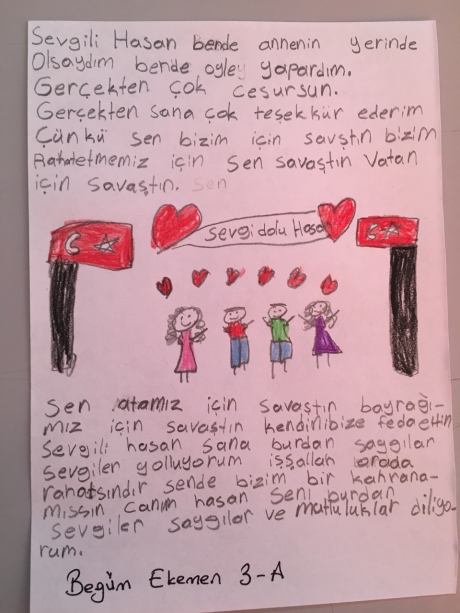 Sevgili Hasan bende annenin yerinde
Olsaydım bende oyley yapardım.
Gerçekten çok cesursun.
Gerçekten sana çok teşekkür ederim
Çünkü sen bizim için savştın bizim
Rahatetmemiz için sen savaştın Vatan
için savaştın. Sen
sevgi dolu Hasa
Sen atamız için savaştın bayrağı-
mız için savaştın kendinibize fedaettin
Sevgili hasan sana burdan saygılar
sevgiler yolluyorum işşallah orada
rahatsındır sende bizim bir kahrana-
mısşın canım hasan seni burdan
sevgiler saygılar ve mutluluklar diliyo-
rum.
Begüm Ekemen 3-A